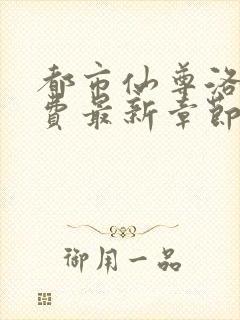 都市仙尊洛
费最新章節
御用一品